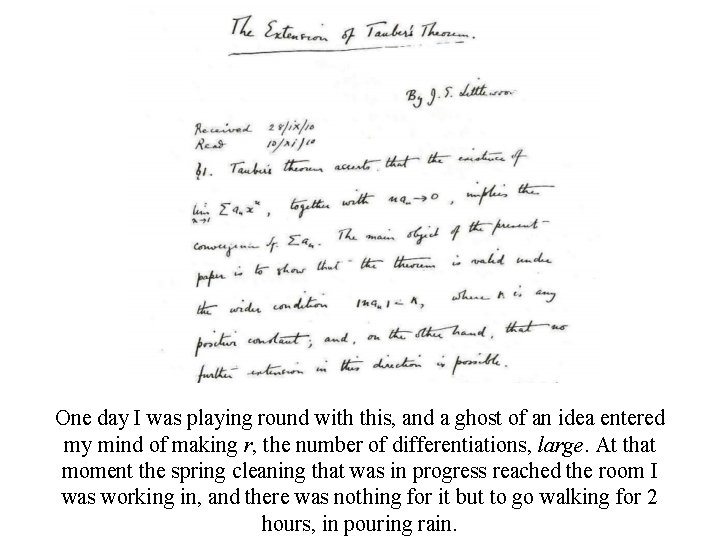 The Extension of Tauber's Theorem.
By J. E. Littlewood
Received 28/ix/10
Read 10/xi/10
§1. Tauber's theorem asserts that the existence of
lim Σ aₙxⁿ, together with naₙ→0, implies the
x→1
convergence of Σaₙ. The main object of the present
paper is to show that the theorem is valid under
the wider condition |naₙ| < K, where K is any
positive constant; and, on the other hand, that no
further extension in this direction is possible.
One day I was playing round with this, and a ghost of an idea entered
my mind of making r, the number of differentiations, large. At that
moment the spring cleaning that was in progress reached the room I
was working in, and there was nothing for it but to go walking for 2
hours, in pouring rain.